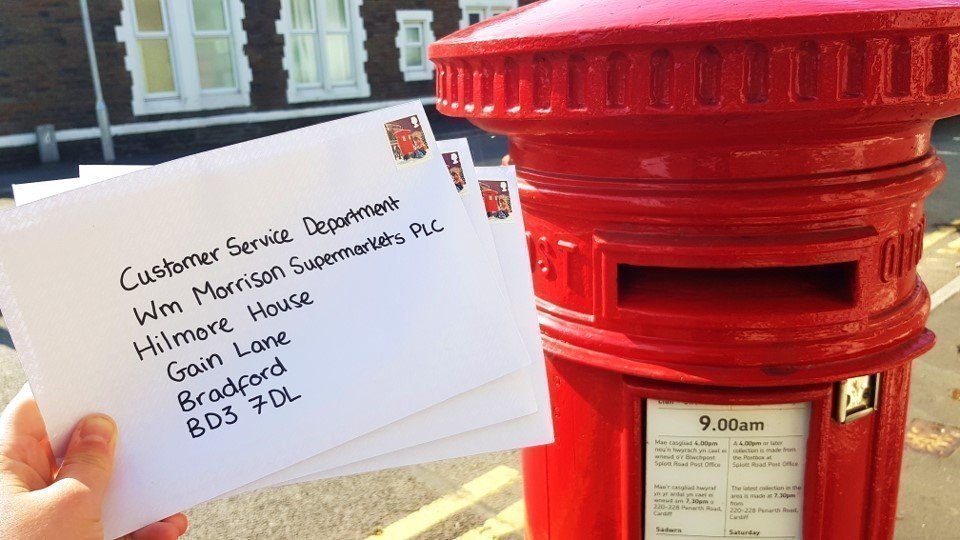 Customer Service Department
Wm Morrison Supermarkets PLC
Hilmore House
Gain Lane
Bradford
BD3 7DL
9.00am
Mae casgliad 4.00pm
neu'n hwyrach yn cael ei
wneud o'r Blwchpost
Splott Road Post Office
A 4.00pm or later
collection is made from
the Postbox at
Splott Road Post Office
Mae'r casgliad hwyraf
yn yr ardal yn cael ei
wneud am 7.30pm o
220-228 Penarth Road,
Cardiff
The latest collection in the
area is made at 7.30pm
from
220-228 Penarth Road,
Cardiff
Sadwrn
Saturday